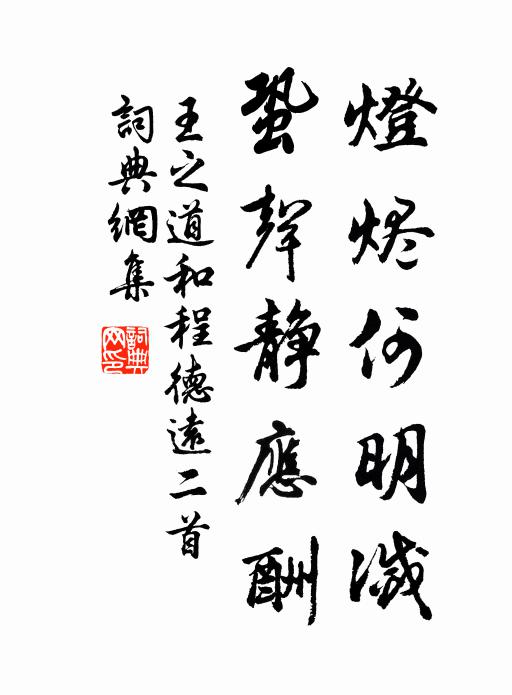 燈烬何明滅
蛩聲静應酬
王之道和程德遠二首
詞典網集
詞典網印